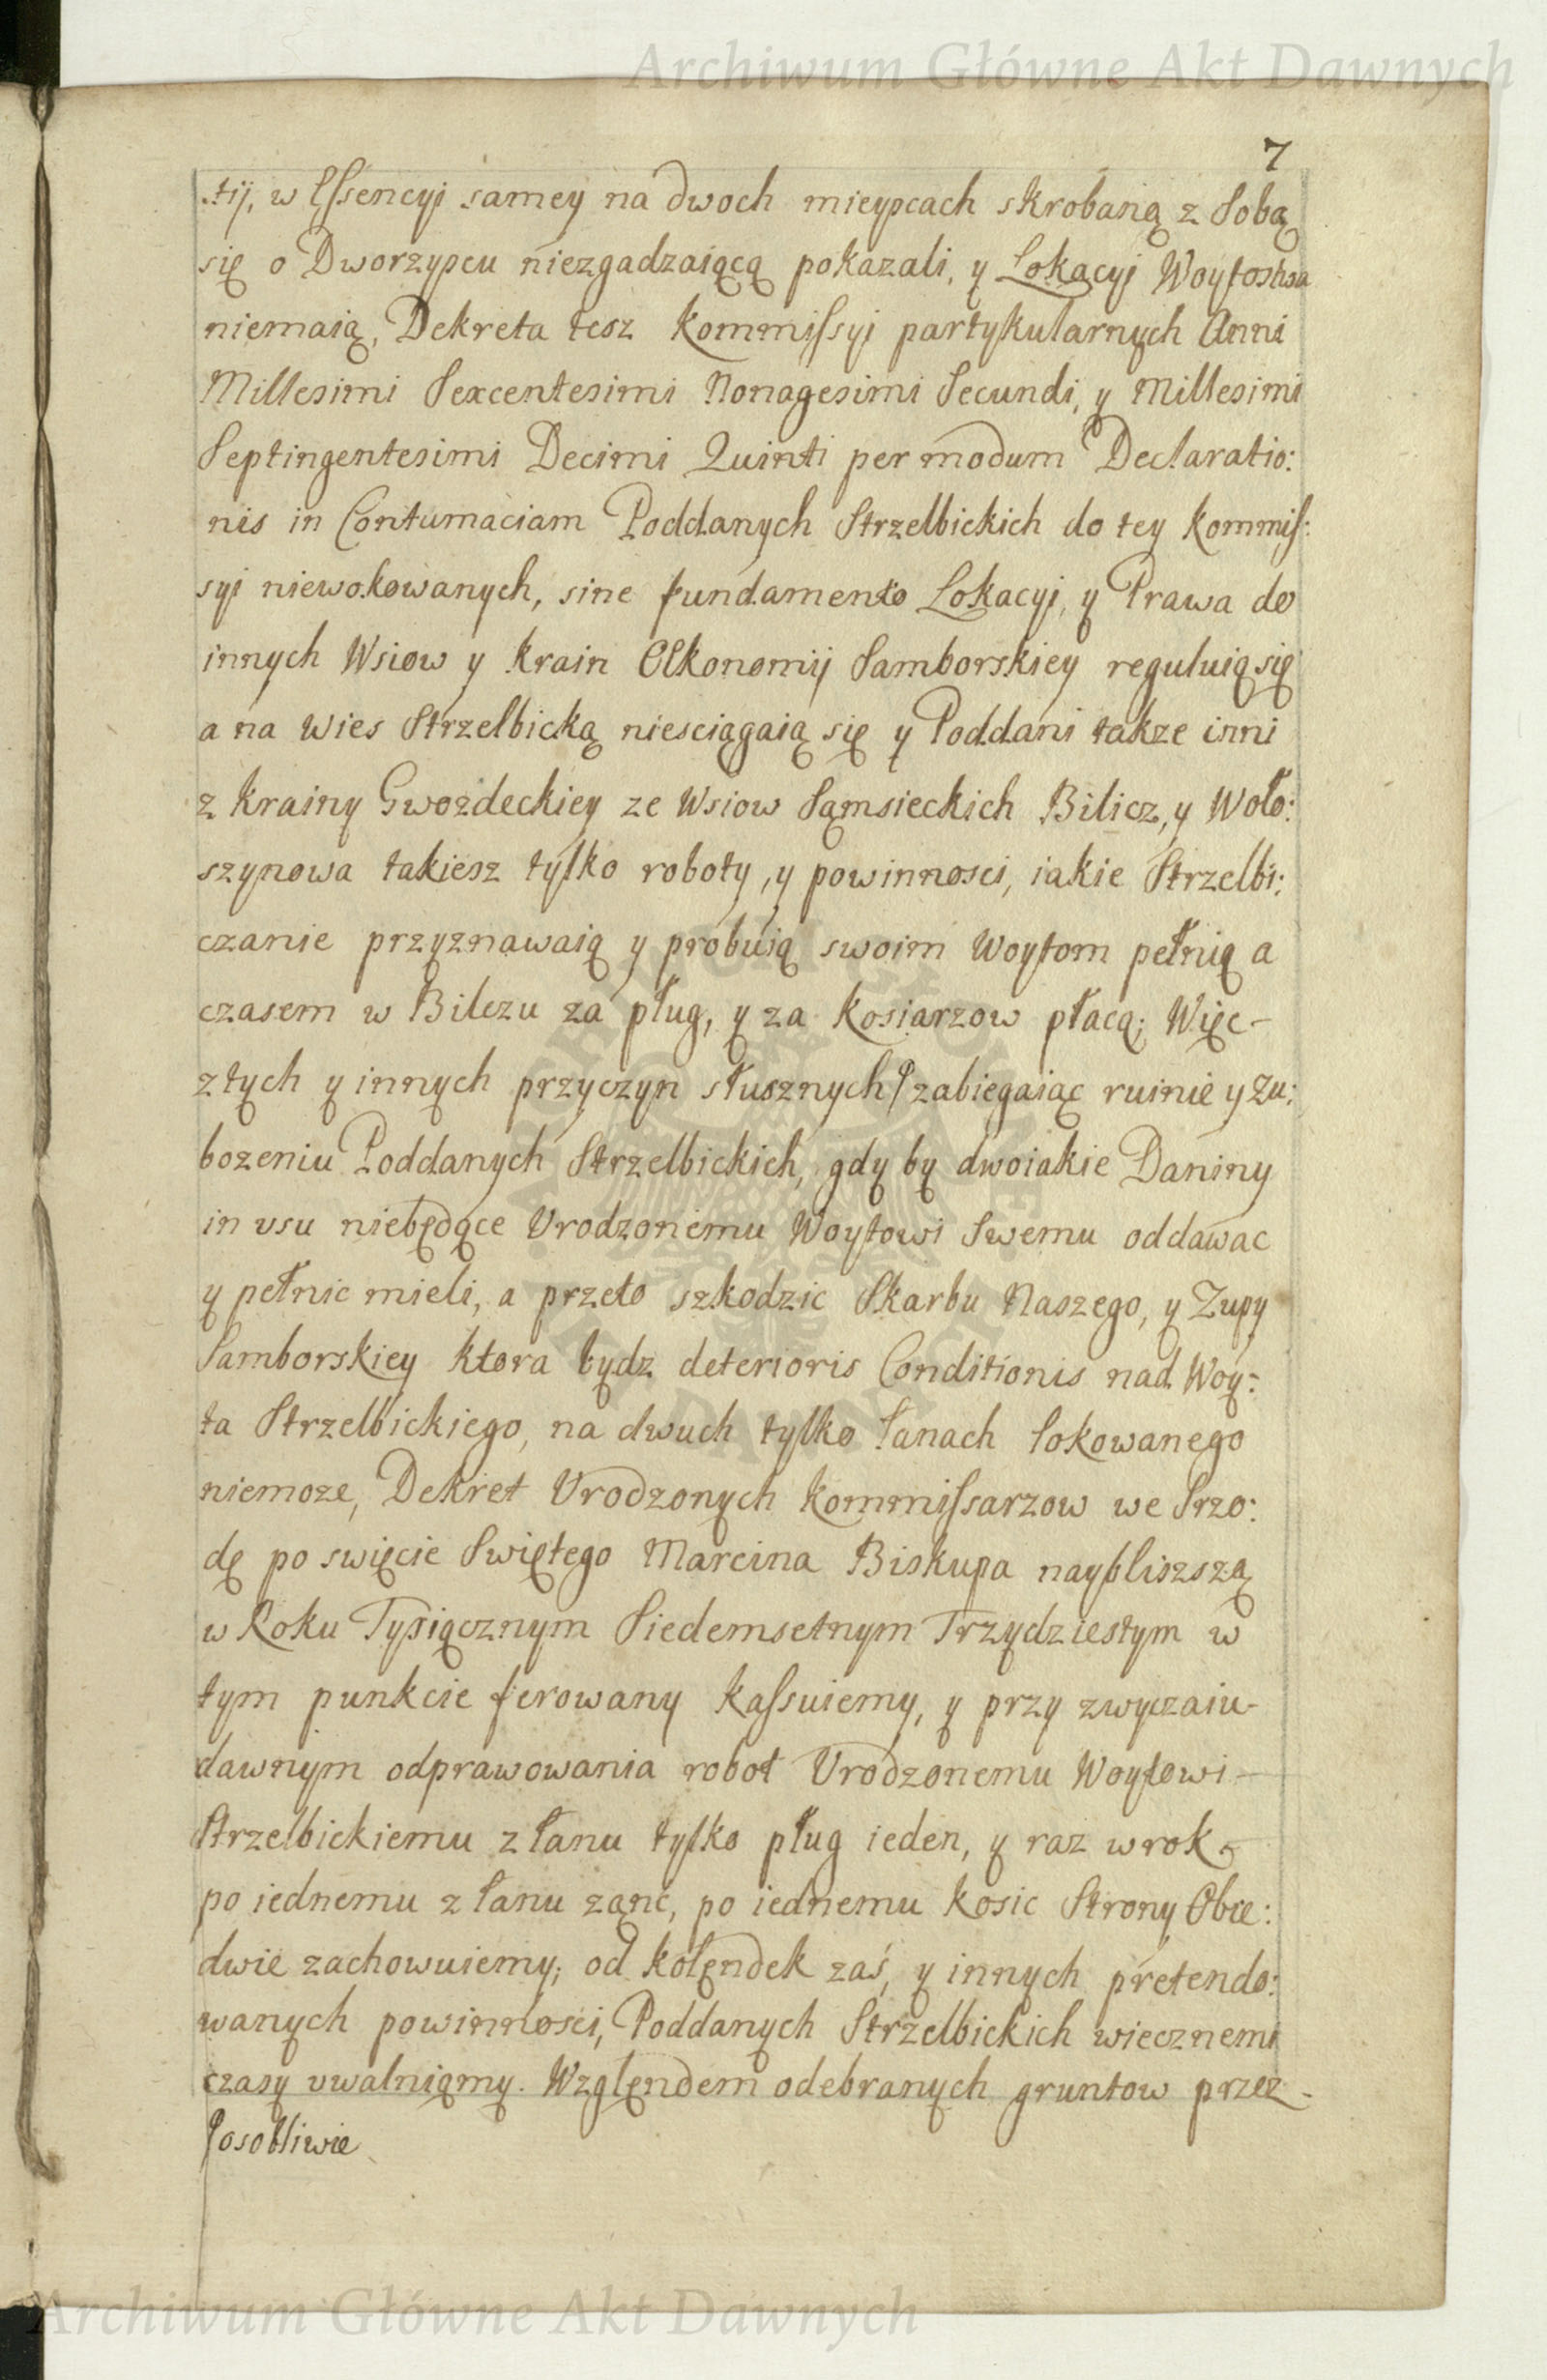 Archiwum Główne Akt Dawnych
7
.tij, w Essencyi samey na dwoch mieyscach skrobaną z Sobą
się o Dworzyscu niezgadzaiącą pokazali, y Lokacyi Woytostwa
niemaią, Dekreta tesz Kommissyi partykularnych Anni
Millesimi Sexcentesimi Nonagesimi Secundi, y Millesimi
Septingentesimi Decimi Quinti per modum Declaratio:
nis in Contumaciam Poddanych Strzelbickich do tey Kommis:
syi niewokowanych, sine fundamento Lokacyi, y Prawa do
innych Wsiow y Krain Ekonomij Samborskiey reguluią się
a na Wies Strzelbicką niesciągaią się y Poddani takze inni
z Krainy Gwozdeckiey ze Wsiow Sąmsieckich Bilicz, y Woło:
szynowa takiesz tylko roboty, y powinnosci, iakie Strzelbi:
czanie przyznawaią y probuią swoim Woytom pełnią a
czasem w Bilczu za pług, y za Kosiarzow płacą; Więc –
z tych y innych przyczyn słusznych zabiegaiąc ruinie y zu:
bozeniu Poddanych Strzelbickich, gdy by dwoiakie Daniny
in usu niebędące Urodzonemu Woytowi Swemu oddawac
y pełnic mieli, a przeto szkodzic Skarbu Naszego, y Zupy
Samborskiey ktora bydz deterioris Conditionis nad Woy:
ta Strzelbickiego, na dwuch tylko łanach lokowanego
niemoze, Dekret Urodzonych Kommissarzow we Srzo:
dę po swięcie Swiętego Marcina Biskupa naybliszszą
w Roku Tysiącznym Siedemsetnym Trzydziestym w
tym punkcie ferowany kassuiemy, y przy zwyczaiu –
dawnym odprawowania robot Urodzonemu Woytowi –
Strzelbickiemu z łanu tylko pług ieden, y raz w rok
po iednemu z łanu ząnc, po iednemu kosic Strony Obie:
dwie zachowuiemy; od kolęndek zaś, y innych pretendo:
wanych powinnosci, Poddanych Strzelbickich wiecznemi
czasy uwalniąmy. Względem odebranych gruntow przez –
osobliwie
Archiwum Główne Akt Dawnych